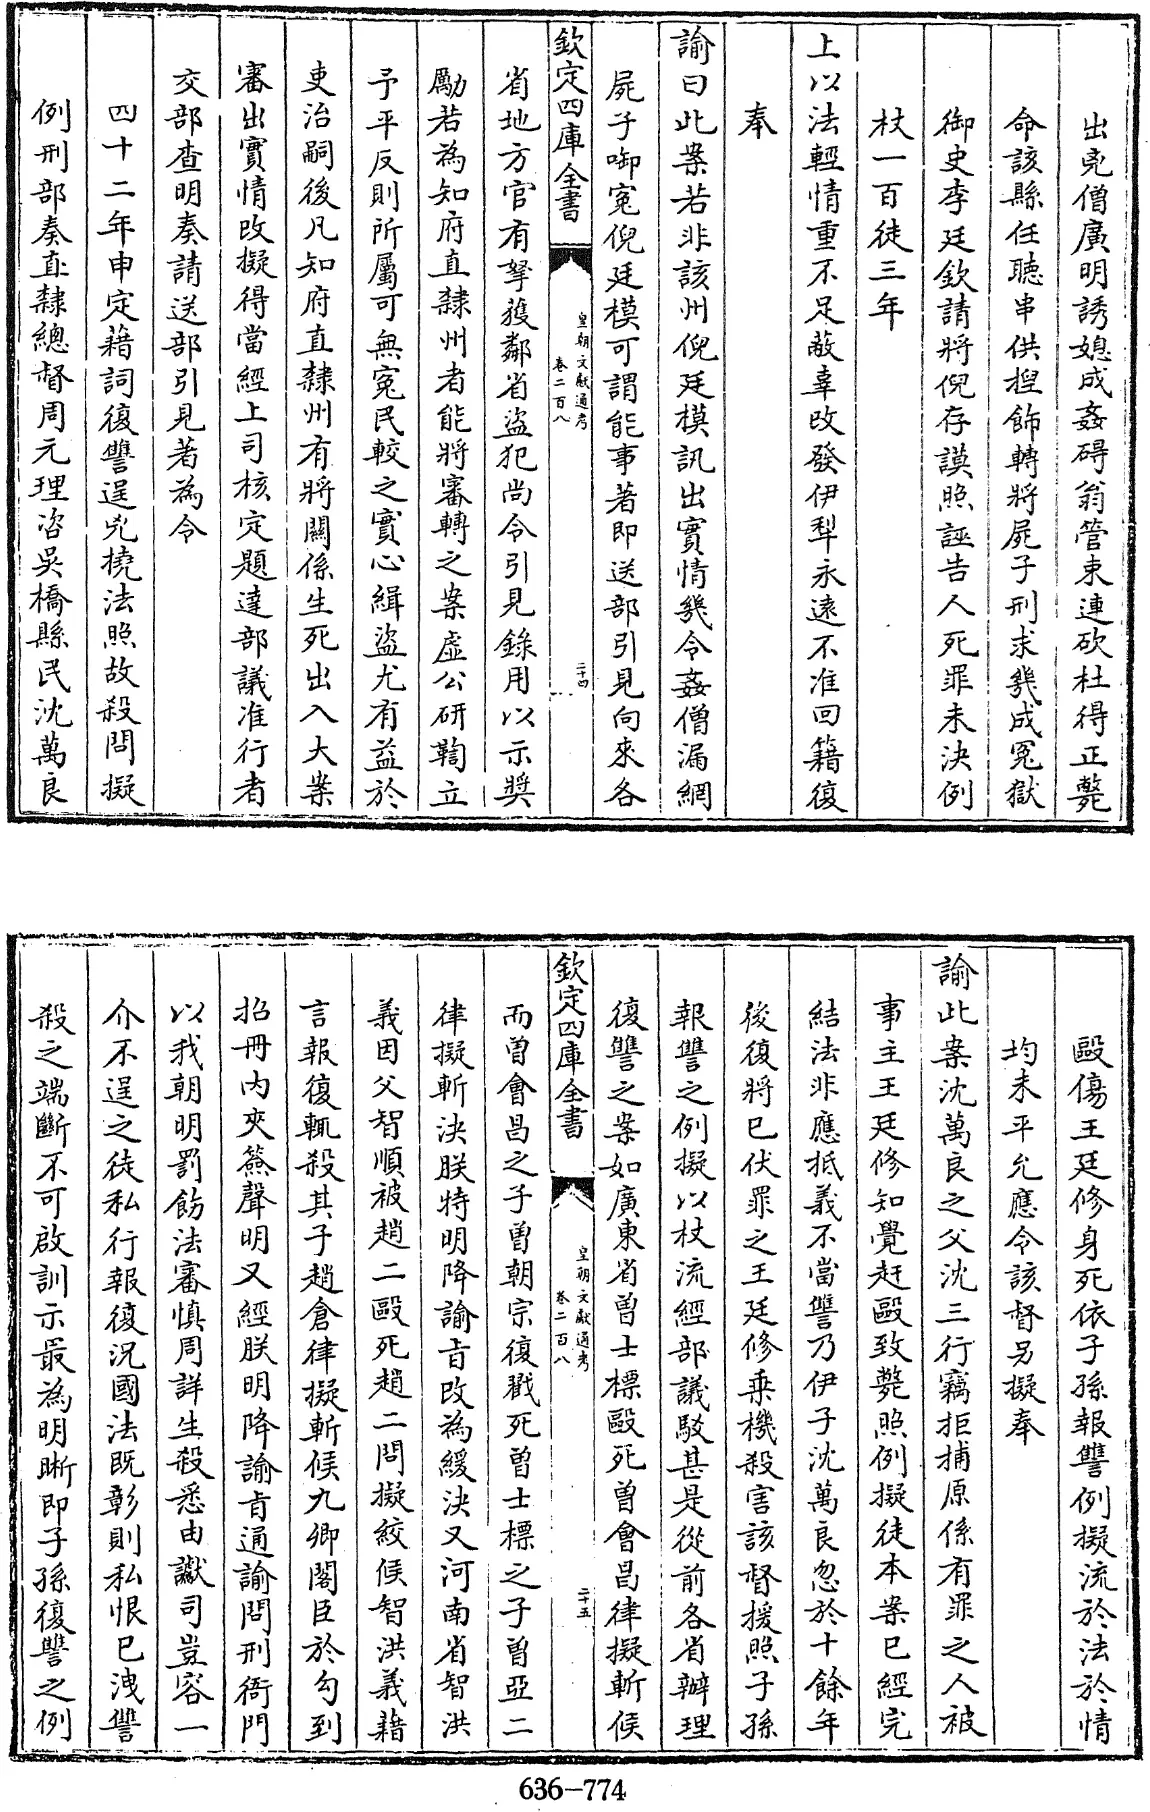 出兇僧廣明誘媳成姦碍翁管束連砍杜得正斃
命該縣任聽串供揑飾轉將屍子刑求幾成冤獄
御史李廷欽請將倪存謨照誣告人死罪未決例
杖一百徒三年
上以法輕情重不足蔽辜改發伊犁永遠不准回籍復
奉
諭曰此案若非該州倪廷模訊出實情幾令姦僧漏網
屍子啣冤倪廷模可謂能事著即送部引見向來各
欽定四庫全書
皇朝文獻通考
卷二百八
二十四
省地方官有拏獲鄰省盜犯尚令引見錄用以示獎
勵若為知府直隸州者能將審轉之案虛公研鞫立
予平反則所屬可無冤民較之實心緝盜尤有益於
吏治嗣後凡知府直隸州有將關係生死出入大案
審出實情改擬得當經上司核定題達部議准行者
交部查明奏請送部引見著為令
四十二年申定藉詞復讐逞兇撓法照故殺問擬
例刑部奏直隸總督周元理咨吳橋縣民沈萬良
毆傷王廷修身死依子孫報讐例擬流於法於情
均未平允應令該督另擬奉
諭此案沈萬良之父沈三行竊拒捕原係有罪之人被
事主王廷修知覺赶毆致斃照例擬徒本案已經完
結法非應抵義不當讐乃伊子沈萬良忽於十餘年
後復將已伏罪之王廷修乗機殺害該督援照子孫
報讐之例擬以杖流經部議駮甚是從前各省辦理
復讐之案如廣東省曽士標毆死曽會昌律擬斬候
欽定四庫全書
皇朝文獻通考
卷二百八
二十五
而曽會昌之子曽朝宗復戳死曽士標之子曽亞二
律擬斬決朕特明降諭旨改為緩決又河南省智洪
義因父智順被趙二毆死趙二問擬絞候智洪義藉
言報復輒殺其子趙倉律擬斬候九卿閣臣於勾到
招冊内夾簽聲明又經朕明降諭旨通諭問刑衙門
以我朝明罰飭法審慎周詳生殺悉由讞司豈容一
介不逞之徒私行報復況國法既彰則私恨已洩讐
殺之端斷不可啟訓示最為明晰即子孫復讐之例
636-774